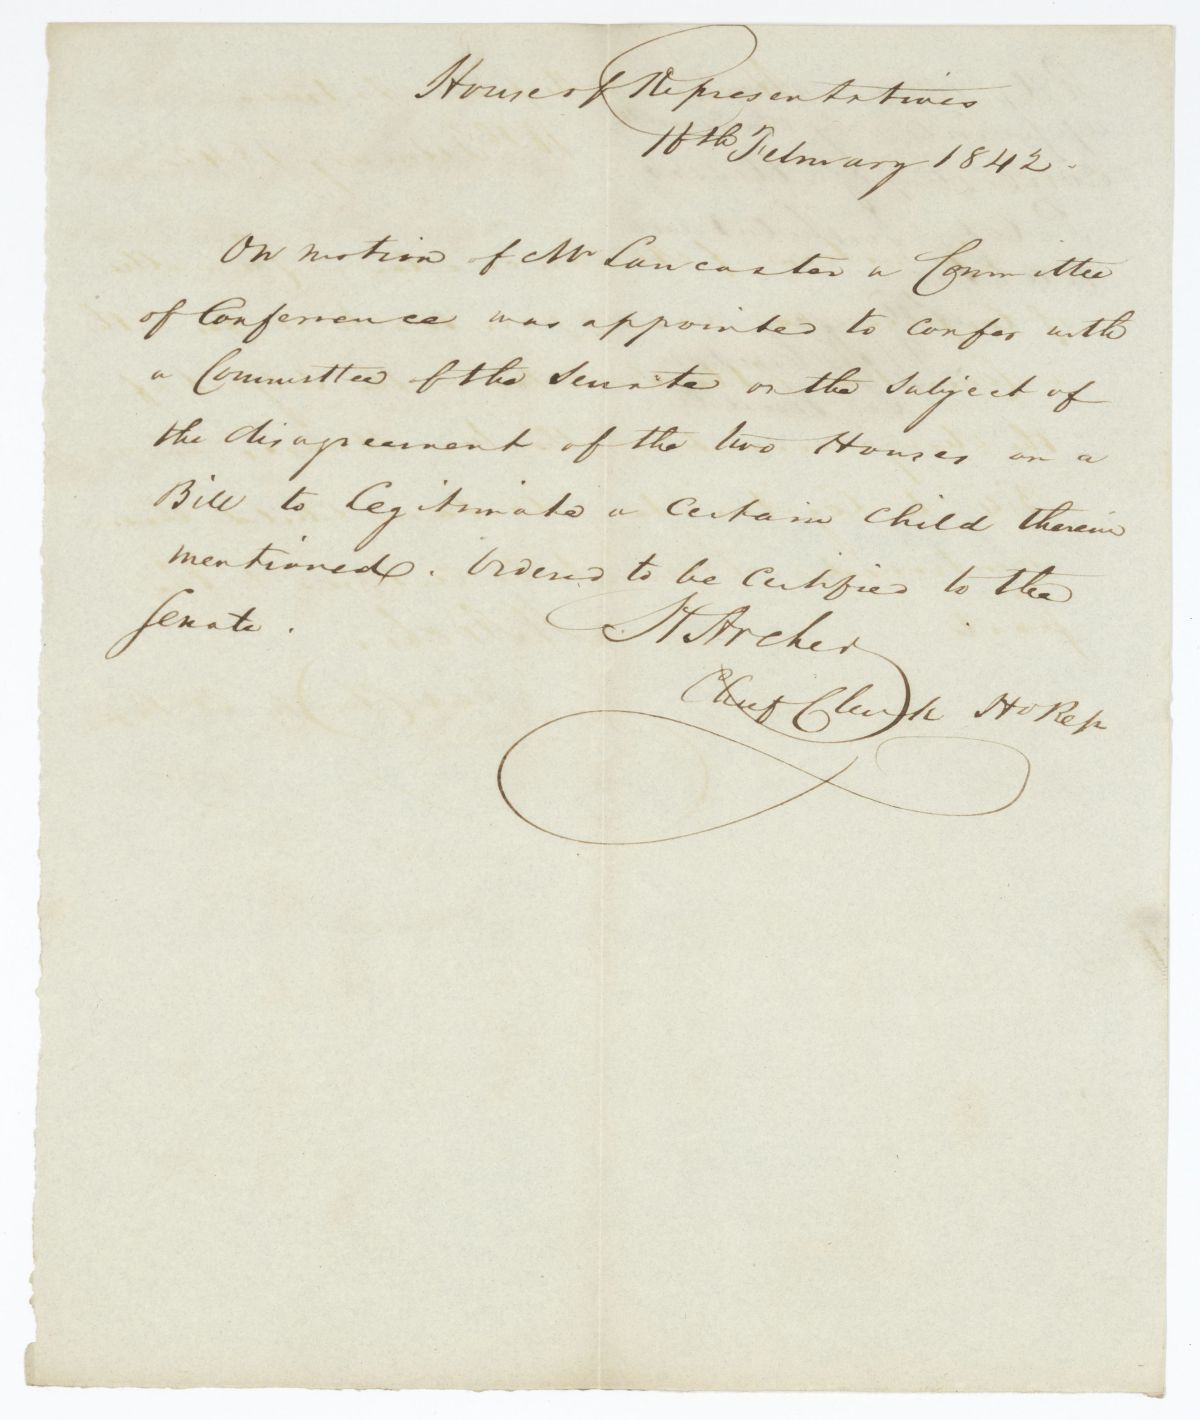 House of Representatives
February 1842.
On motion of Mr Lancaster a Committee
of Conference was appointed to confer with
a Committee of the Senate on the subject of
the disagreement of the two Houses on a
Bill to legitimate a certain child therein
mentioned. Ordered to be certified to the
Senate.
H Archer
Chief Clerk Ho Rep